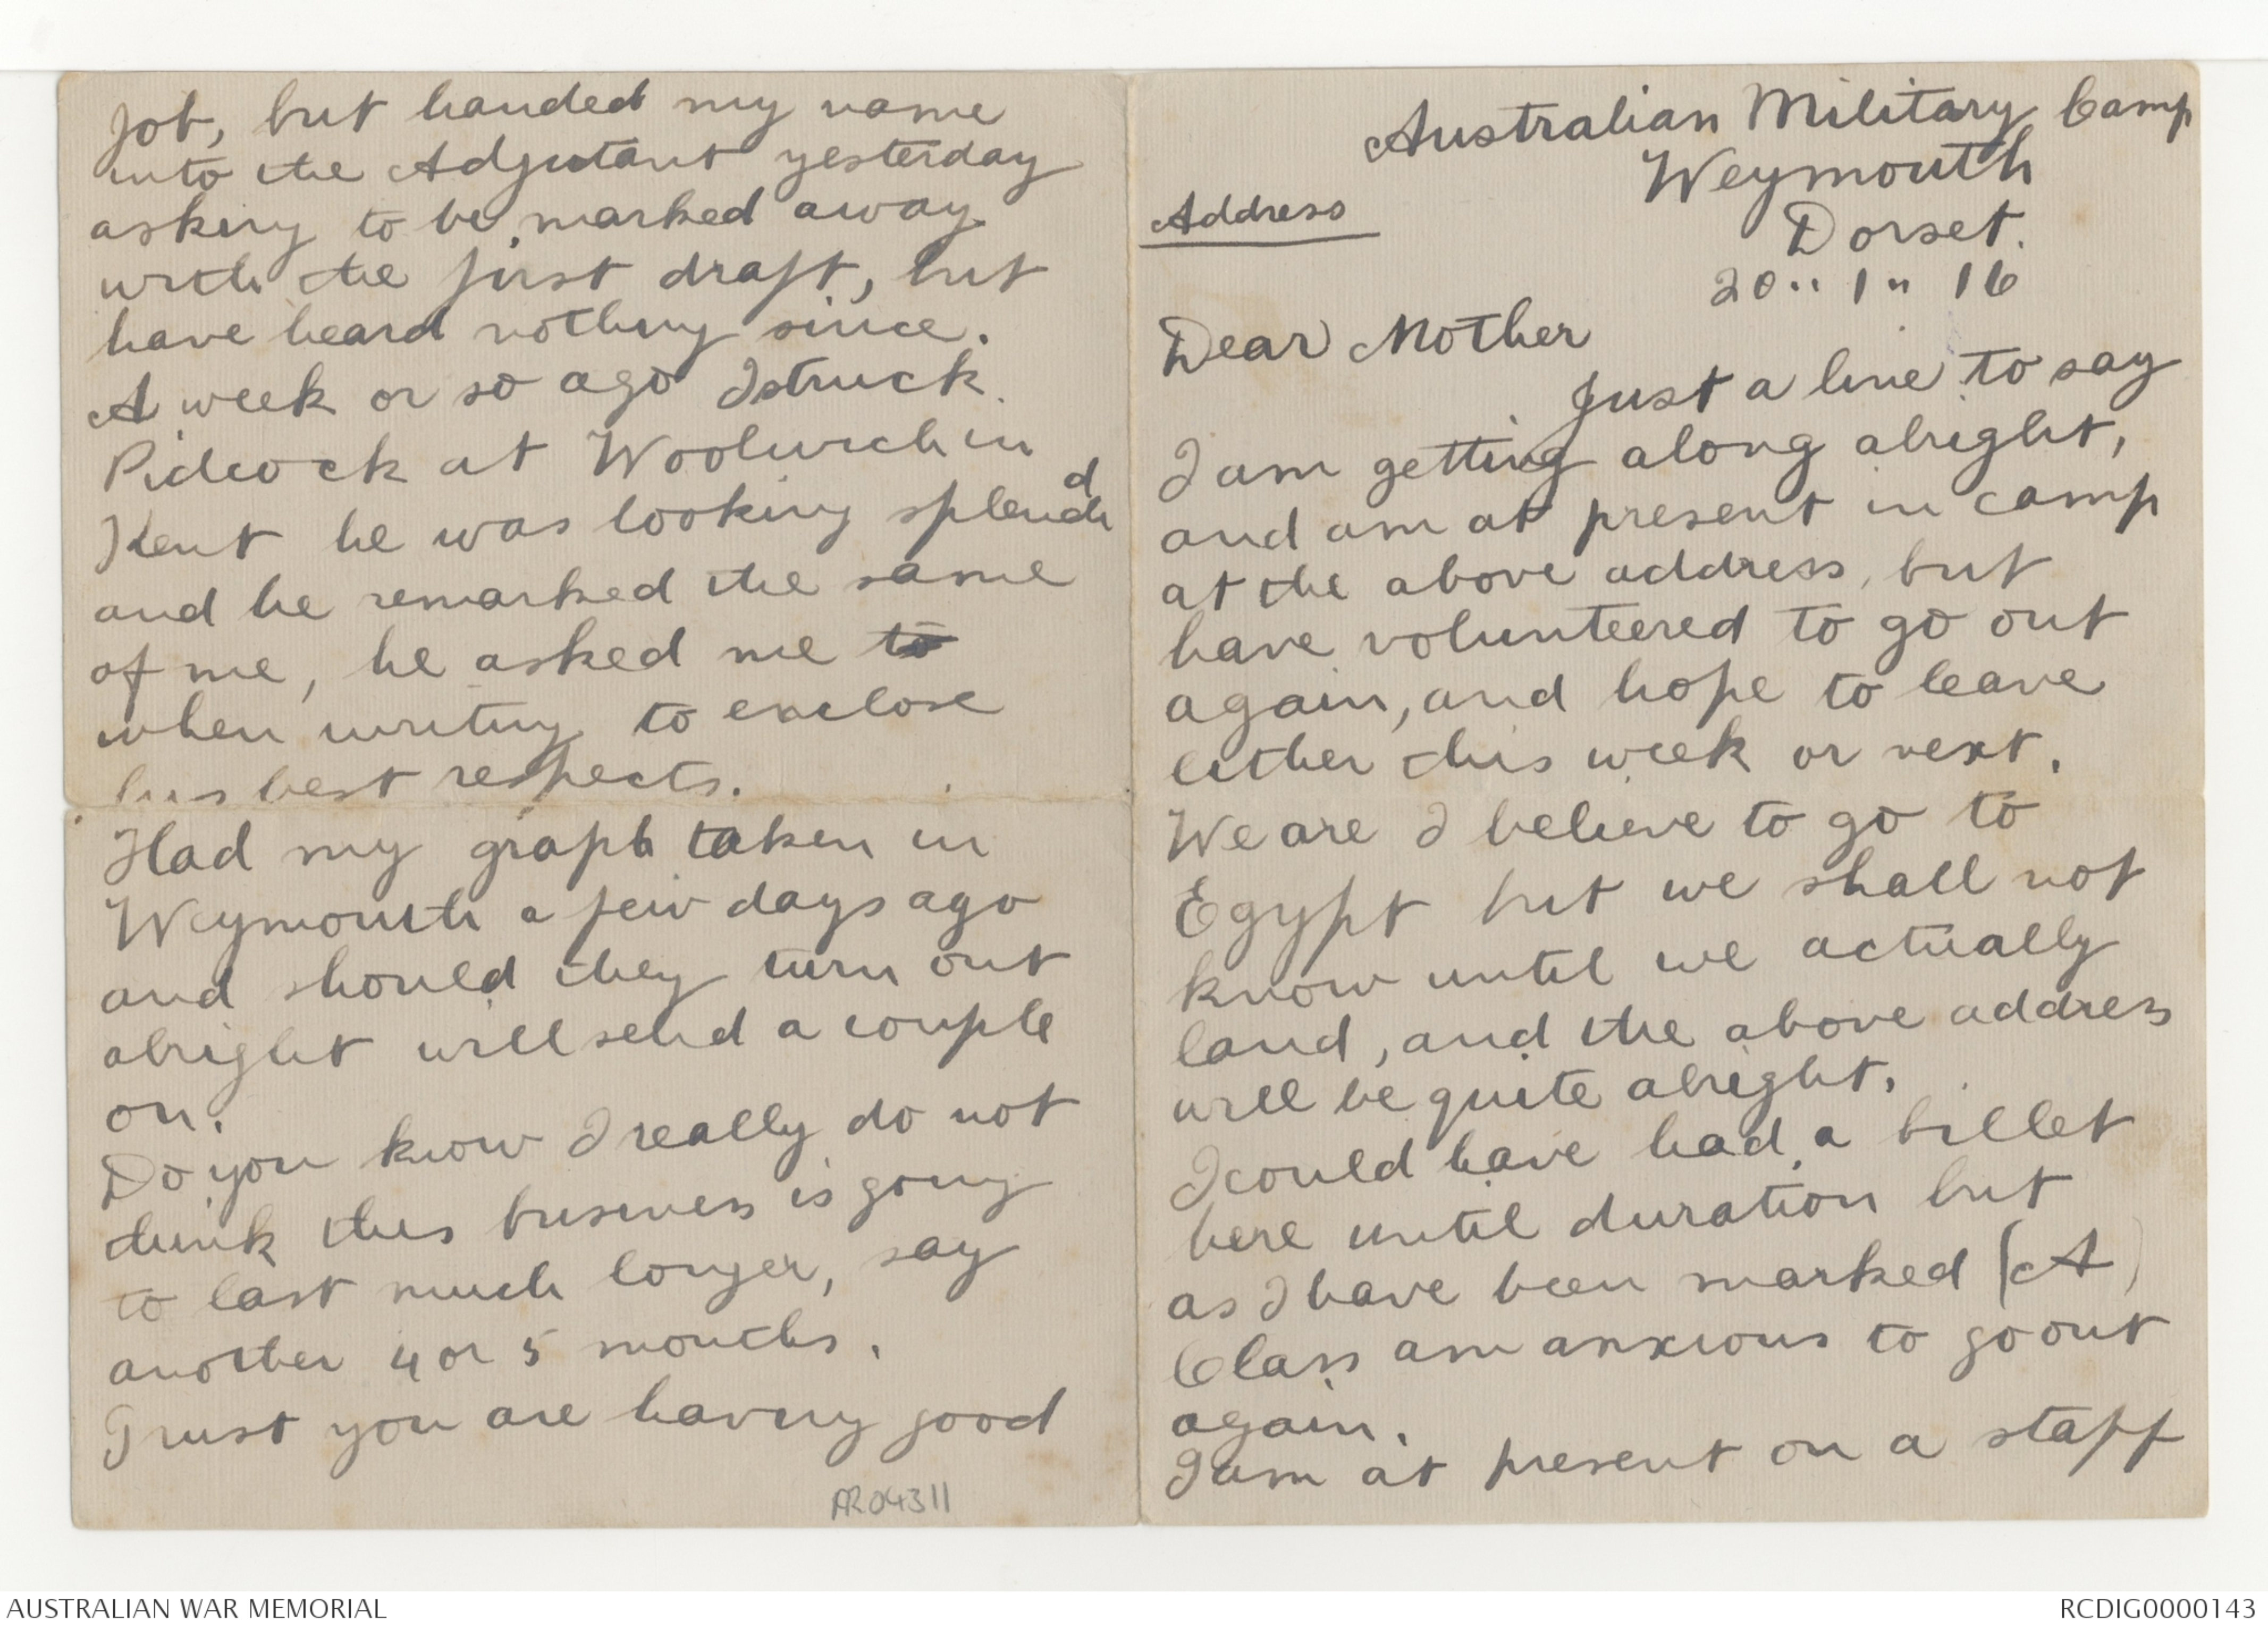 Australian Military Camp
Weymouth
Address
Dorset.
20 " 1 " 16
Dear Mother
Just a line to say
I am getting along alright,
and am at present in camp
at the above address, but
have volunteered to go out
again, and hope to leave
either this week or next.
We are I believe to go to
Egypt but we shall not
know until we actually
land, and the above address
will be quite alright.
I could have had a billet
here until duration but
as I have been marked (A)
Class am anxious to go out
again.
I am at present on a staff
job, but handed my name
into the Adjutant yesterday
asking to be marked away
with the first draft, but
have heard nothing since.
A week or so ago I struck
Pidcock at Woolwich in
Kent he was looking splendid
and he remarked the same
of me, he asked me to
when writing to enclose
his best respects.
Had my graph taken in
Weymouth a few days ago
and should they turn out
alright will send a couple
on.
Do you know I really do not
think this business is going
to last much longer, say
another 4 or 5 months.
Trust you are having good
AR04311
AUSTRALIAN WAR MEMORIAL
RCDIG0000143